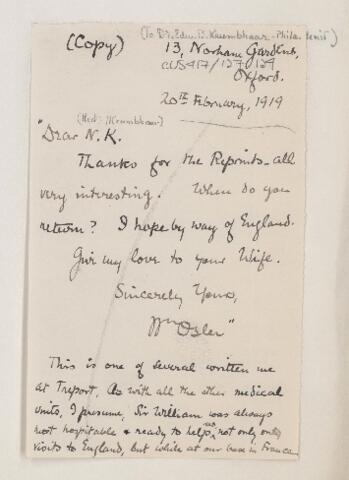 (To Dr. Edw. B. Krumbhaar - Phila. Penn)
(Copy)
13, Norham Gardens,
CUS417/137.129
Oxford.
20th February, 1919
(Krumbhaar)
"Dear N. K.
Thanks for the Reprints - all
very interesting. When do you
return? I hope by way of England.
Give my love to your Wife.
Sincerely Yours,
Wm Osler"
This is one of several written me
at Treport. As with all the other medical
units, I presume, Sir William was always
most hospitable & ready to help us, not only on
visits to England, but while at our base in France